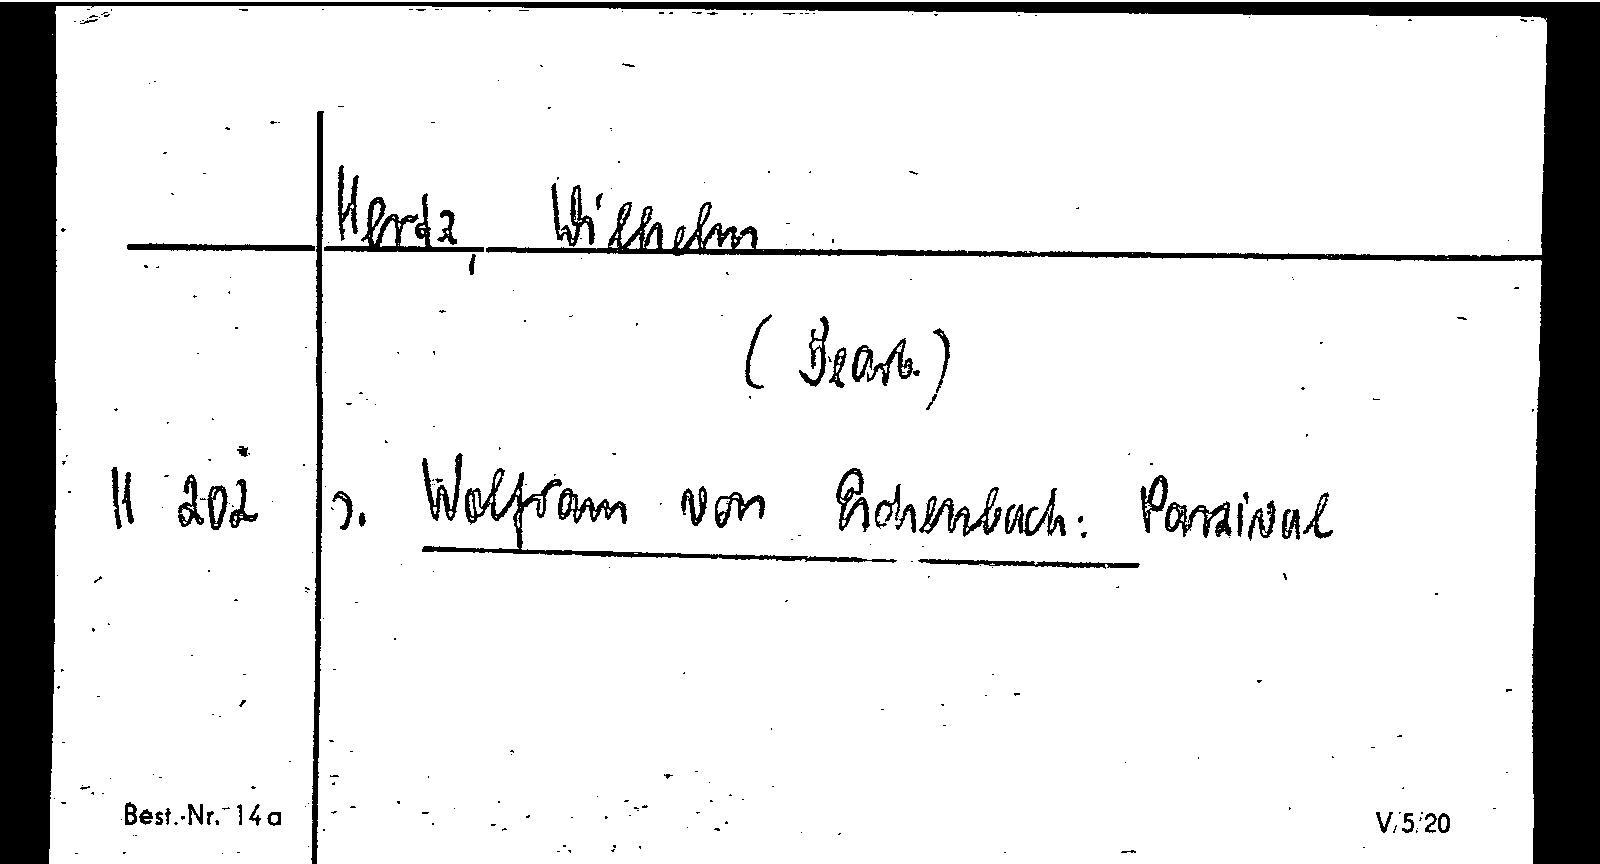 Hertz, Wilhelm
(Bearb.)
II 202 s. Wolfram von Eschenbach: Parzival
Best.-Nr. 14a V/5/20